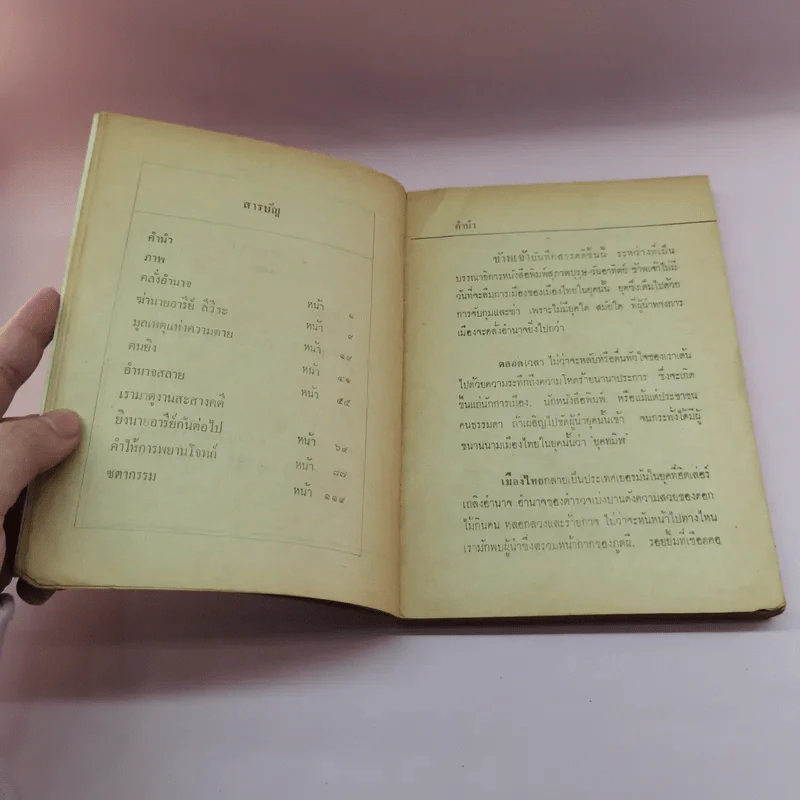 สารบัญ
คำนำ
ภาพ
คลั่งอำนาจ หน้า ๑
ฆ่านายอารีย์ ลีวีระ หน้า ๙
มูลเหตุแห่งความตาย หน้า ๑๙
คนยิง หน้า ๔๑
อำนาจสลาย หน้า ๕๕
เรามาดูงานสะสางคดี
ยิงนายอารีย์กันต่อไป หน้า ๖๙
คำให้การพยานโจทก์ หน้า ๘๗
ชตากรรม หน้า ๑๑๙
คำนำ
ข้าพเจ้าบันทึกสารคดีชิ้นนี้ ระหว่างที่เป็น
บรรณาธิการหนังสือพิมพ์สุภาพบุรุษ-วันอาทิตย์ ข้าพเจ้าไม่มี
วันที่จะลืมการเมืองของเมืองไทยในยุคนั้น ยุคซึ่งเต็มไปด้วย
การจับกุมและฆ่า เพราะไม่มียุคใด สมัยใด ที่ผู้นำทางการ
เมืองจะคลั่งอำนาจยิ่งไปกว่า
ตลอดเวลา ไม่ว่าจะหลับหรือตื่นหัวใจของเราเต้น
ไปด้วยความระทึกถึงความโหดร้ายนานาประการ ซึ่งจะเกิด
ขึ้นแก่นักการเมือง, นักหนังสือพิมพ์ หรือแม้แต่ประชาชน
คนธรรมดา ถ้าเผอิญไปขัดผู้นำยุคนั้นเข้า จนกระทั่งได้มีผู้
ขนานนามเมืองไทยในยุคนั้นว่า "ยุคทมิฬ"
เมืองไทยกลายเป็นประเทศเยอรมันในยุคที่ฮิตเล่อร์
เถลิงอำนาจ อำนาจของตำรวจเบ่งบานดังความสวยของดอก
ไม้กินคน หลอกลวงและร้ายกาจ ไม่ว่าจะหันหน้าไปทางไหน
เรามักพบผู้นำซึ่งสรวมหน้ากากของภูตผี, รอยยิ้มที่เชือดคอ